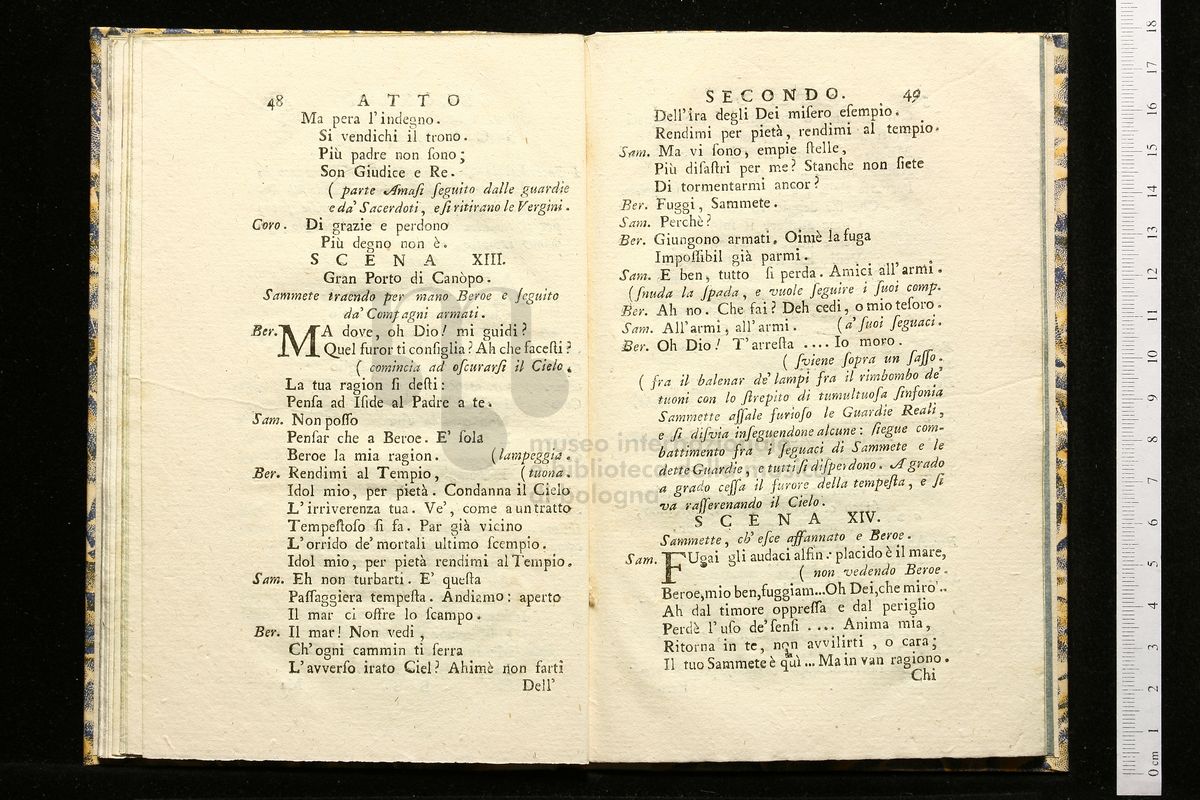 48 ATTO
Ma pera l'indegno.
Si vendichi il trono.
Più padre non ſono;
Son Giudice e Re.
( parte Amaſi ſeguito dalle guardie
e da' Sacerdoti, e ſi ritirano le Vergini.
Coro. Di grazie e perdono
Più degno non è.
SCENA XIII.
Gran Porto di Canòpo.
Sammete traendo per mano Beroe e ſeguito
da' Compagni armati.
Ber. MA dove, oh Dio! mi guidi?
Quel furor ti conſiglia? Ah che faceſti?
( comincia ad oſcurarſi il Cielo.
La tua ragion ſi deſti:
Penſa ad Iſide al Padre a te.
Sam. Non poſſo
Penſar che a Beroe. E' ſola
Beroe la mia ragion. (lampeggia.
Ber. Rendimi al Tempio, (tuona.
Idol mio, per pietà. Condanna il Cielo
L'irriverenza tua. Ve', come a un tratto
Tempeſtoſo ſi fa. Par già vicino
L'orrido de' mortali ultimo ſcempio.
Idol mio, per pietà rendimi al Tempio.
Sam. Eh non turbarti. E' queſta
Paſſaggiera tempeſta. Andiamo: aperto
Il mar ci offre lo ſcampo.
Ber. Il mar! Non vedi,
Ch'ogni cammin ti ſerra
L'avverſo irato Ciel? Ahimè non farti
Dell'
SECONDO. 49
Dell'ira degli Dei miſero eſempio.
Rendimi per pietà, rendimi al tempio.
Sam. Ma vi ſono, empie ſtelle,
Più diſaſtri per me? Stanche non ſiete
Di tormentarmi ancor?
Ber. Fuggi, Sammete.
Sam. Perchè?
Ber. Giungono armati. Oimè la fuga
Impoſſibil già parmi.
Sam. E ben, tutto ſi perda. Amici all'armi.
(ſnuda la ſpada, e vuole ſeguire i ſuoi comp.
Ber. Ah no. Che fai? Deh cedi, o mio teſoro.
Sam. All'armi, all'armi. (a' ſuoi ſeguaci.
Ber. Oh Dio! T'arreſta .... Io moro.
( ſviene ſopra un ſaſſo.
( fra il balenar de' lampi fra il rimbombo de'
tuoni con lo ſtrepito di tumultuoſa ſinfonia
Sammette aſſale furioſo le Guardie Reali,
e ſi diſvia inſeguendone alcune: ſiegue com-
battimento fra i ſeguaci di Sammete e le
dette Guardie, e tutti ſi diſperdono. A grado
a grado ceſſa il furore della tempeſta, e ſi
va raſſerenando il Cielo.
SCENA XIV.
Sammette, ch' eſce affannato e Beroe.
Sam. FUgai gli audaci alfin: placido è il mare,
( non vedendo Beroe.
Beroe, mio ben, fuggiam...Oh Dei, che miro'..
Ah dal timore oppreſſa e dal periglio
Perdè l'uſo de' ſenſi .... Anima mia,
Ritorna in te, non avvilirti, o cara;
Il tuo Sammete è quì ... Ma in van ragiono.
Chi
museo internazionale
e biblioteca della musica
di bologna
0 cm 1 2 3 4 5 6 7 8 9 10 11 12 13 14 15 16 17 18